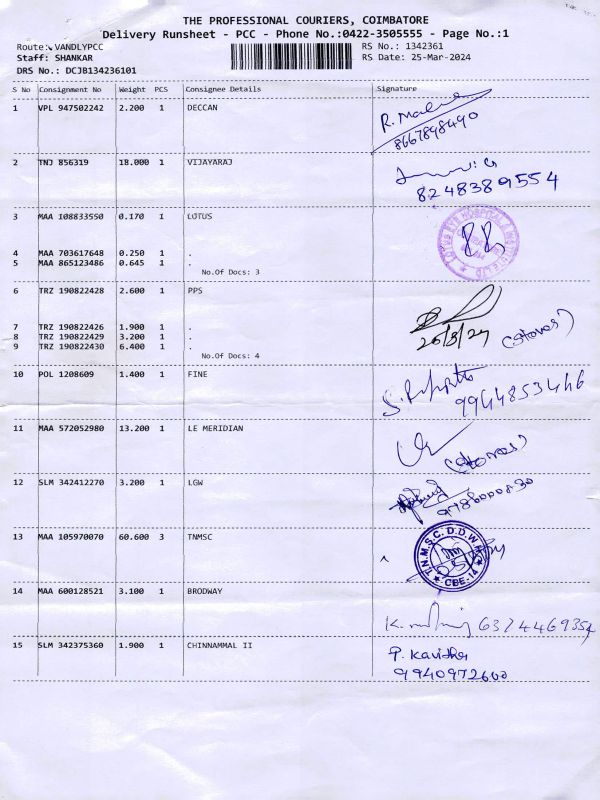 THE PROFESSIONAL COURIERS, COIMBATORE
Delivery Runsheet - PCC - Phone No.:0422-3505555 - Page No.:1
Route: VANDLYPCC RS No.: 1342361
Staff: SHANKAR RS Date: 25-Mar-2024
DRS No.: DCJB134236101
S No Consignment No Weight PCS Consignee Details Signature
1 VPL 947502242 2.200 1 DECCAN
8667898490
2 TNJ 856319 18.000 1 VIJAYARAJ
8248389554
3 MAA 108833550 0.170 1 LOTUS
4 MAA 703617648 0.250 1 .
5 MAA 865123486 0.645 1 .
No.Of Docs: 3
6 TRZ 190822428 2.600 1 PPS
7 TRZ 190822426 1.900 1 .
8 TRZ 190822429 3.200 1 .
9 TRZ 190822430 6.400 1 .
26/3/24 (Stores)
No.Of Docs: 4
10 POL 1208609 1.400 1 FINE
9944853466
11 MAA 572052980 13.200 1 LE MERIDIAN
(Stores)
12 SLM 342412270 3.200 1 LGW
13 MAA 105970070 60.600 3 TNMSC
T.N.M.S.C. D.D.W.H
CBE-14
14 MAA 600128521 3.100 1 BRODWAY
6374469354
15 SLM 342375360 1.900 1 CHINNAMMAL II
P. Kavitha
9940972600